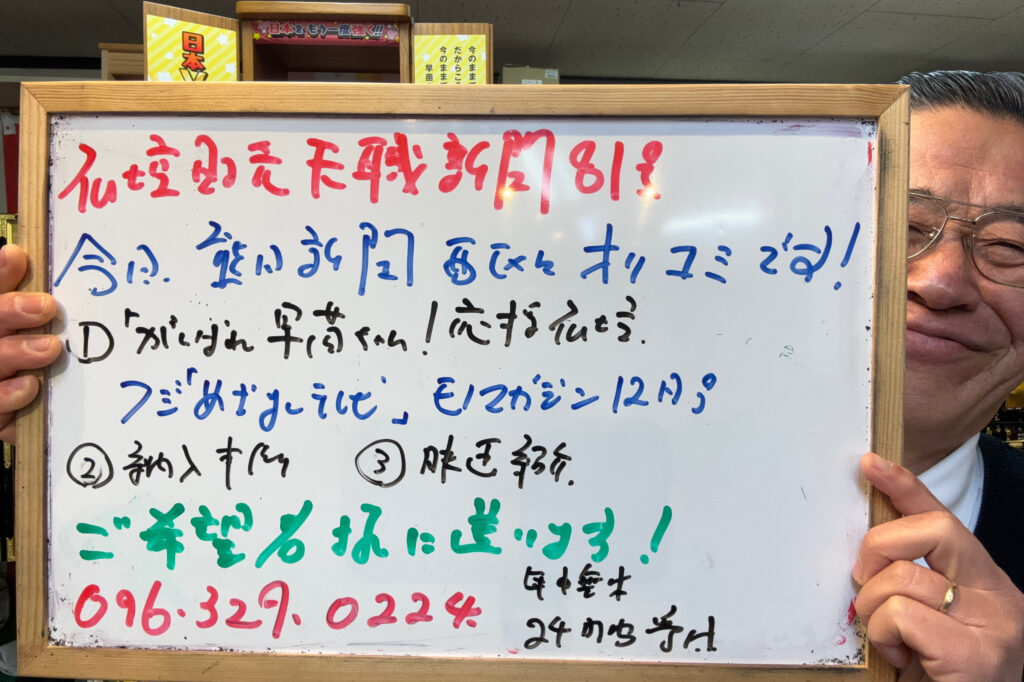 日本を
日本をもう一度強く!!!
今のまま
だからこそ
今のまま
早苗
仏壇販売天職新聞81号
今日、熊日新聞西区にオリコミです!
①「がんばれ早苗ちゃん!応する仏壇
フジ「めざましテレビ」モノマガジン12月号
②納入事例 ③映画紹介
ご希望者様に送ります!
096.329.0224
年中無休
24時から受付